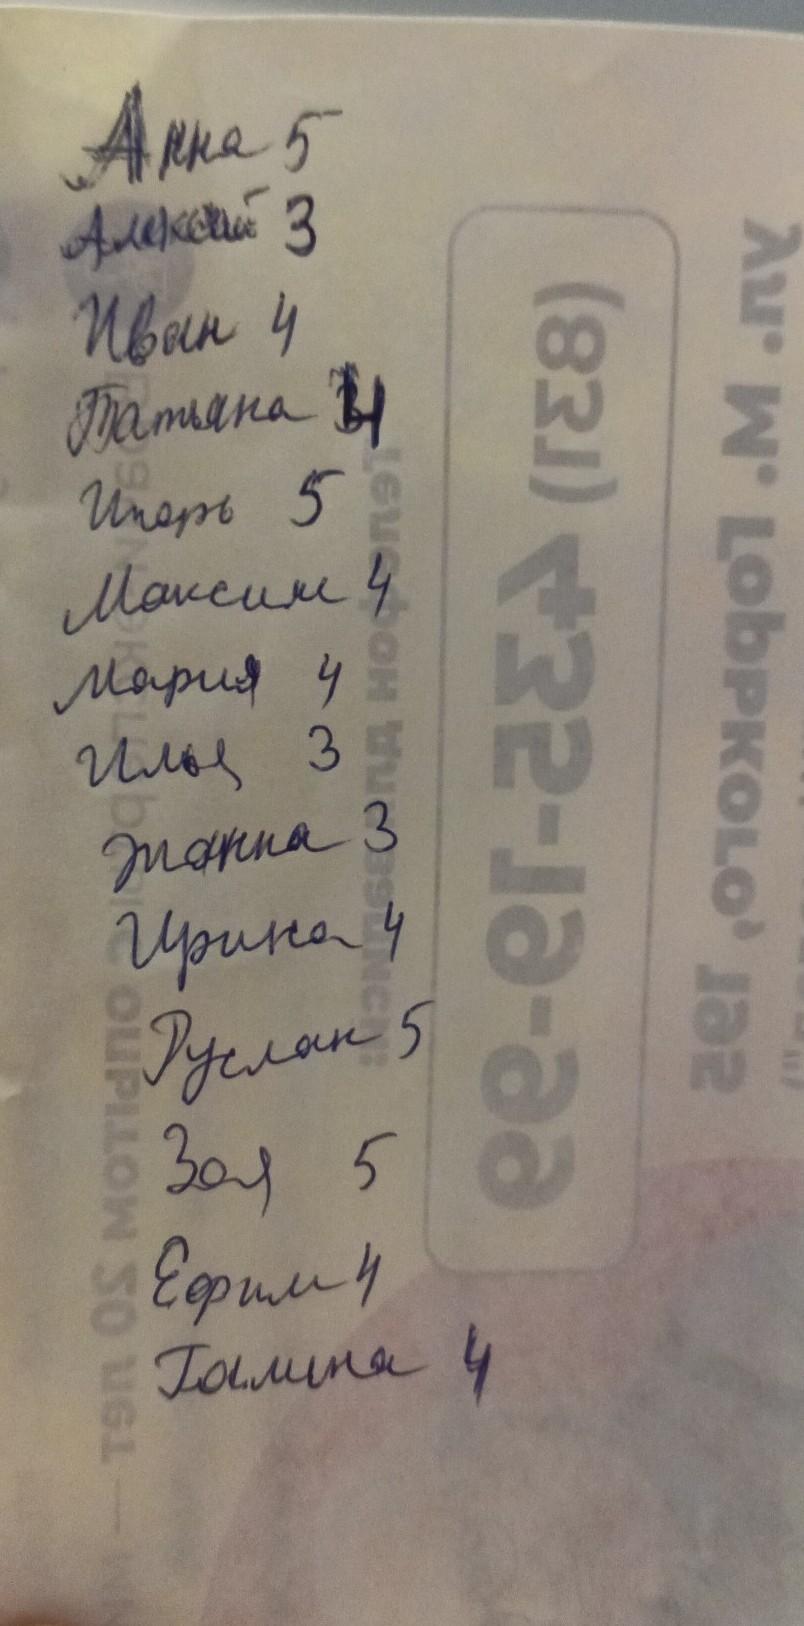 Анна 5
Алексей 3
Иван 4
Татьяна 4
Игорь 5
Максим 4
Мария 4
Илья 3
Жанна 3
Ирина 4
Руслан 5
Зоя 5
Ефим 4
Галина 4
ул. М. Горького, 195
(831) 435-19-99
Телефон для записи:
с опытом 20 лет —